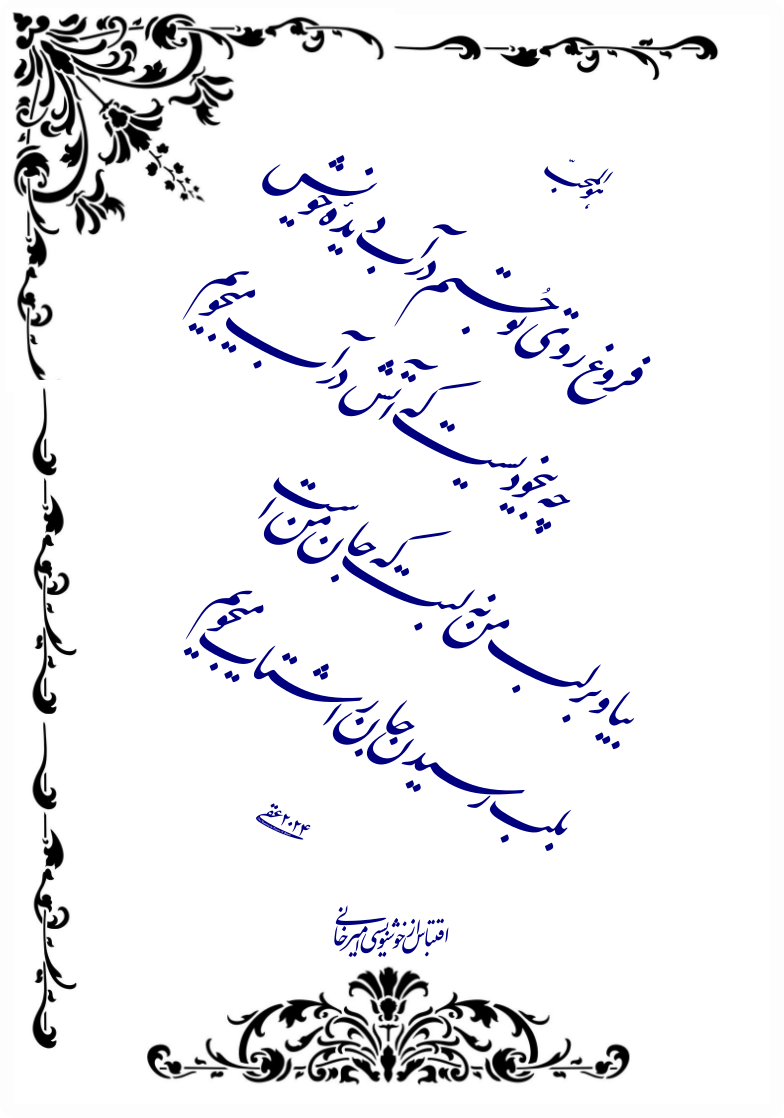 هو المحبّ
فروغ روی تو جُستم در آب دیدهٔ خویش
چه بیخودیست که آتش در آب میجویم
بیا و بر لب من نه لبت که جان من است
بلب رسیدن جان را شتاب میجویم
۲۰۲۴
اقتباس از خوشنویسی امیرخانی